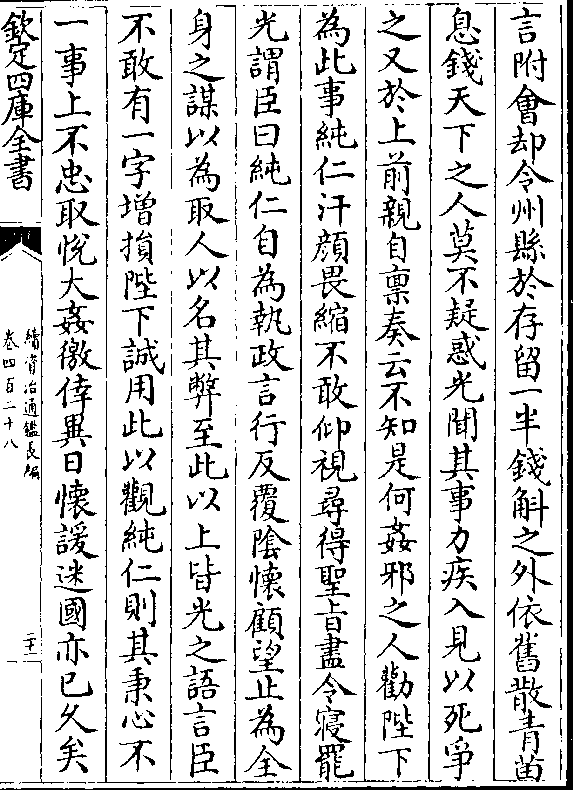 言附會却令州縣於存留一半錢斛之外依舊散青苗
息錢天下之人莫不疑惑光聞其事力疾入見以死爭
之又於上前親自稟奏云不知是何姦邪之人勸陛下
為此事純仁汗顔畏縮不敢仰視尋得聖旨盡令寢罷
光謂臣曰純仁自為執政言行反覆陰懷顧望止為全
身之謀以為取人以名其弊至此以上皆光之語言臣
不敢有一字增損陛下誠用此以觀純仁則其秉心不
一事上不忠取悅大姦徼倖異日懷諼迷國亦已久矣
欽定四庫全書
續資治通鑑長編
卷四百二十八
二十一